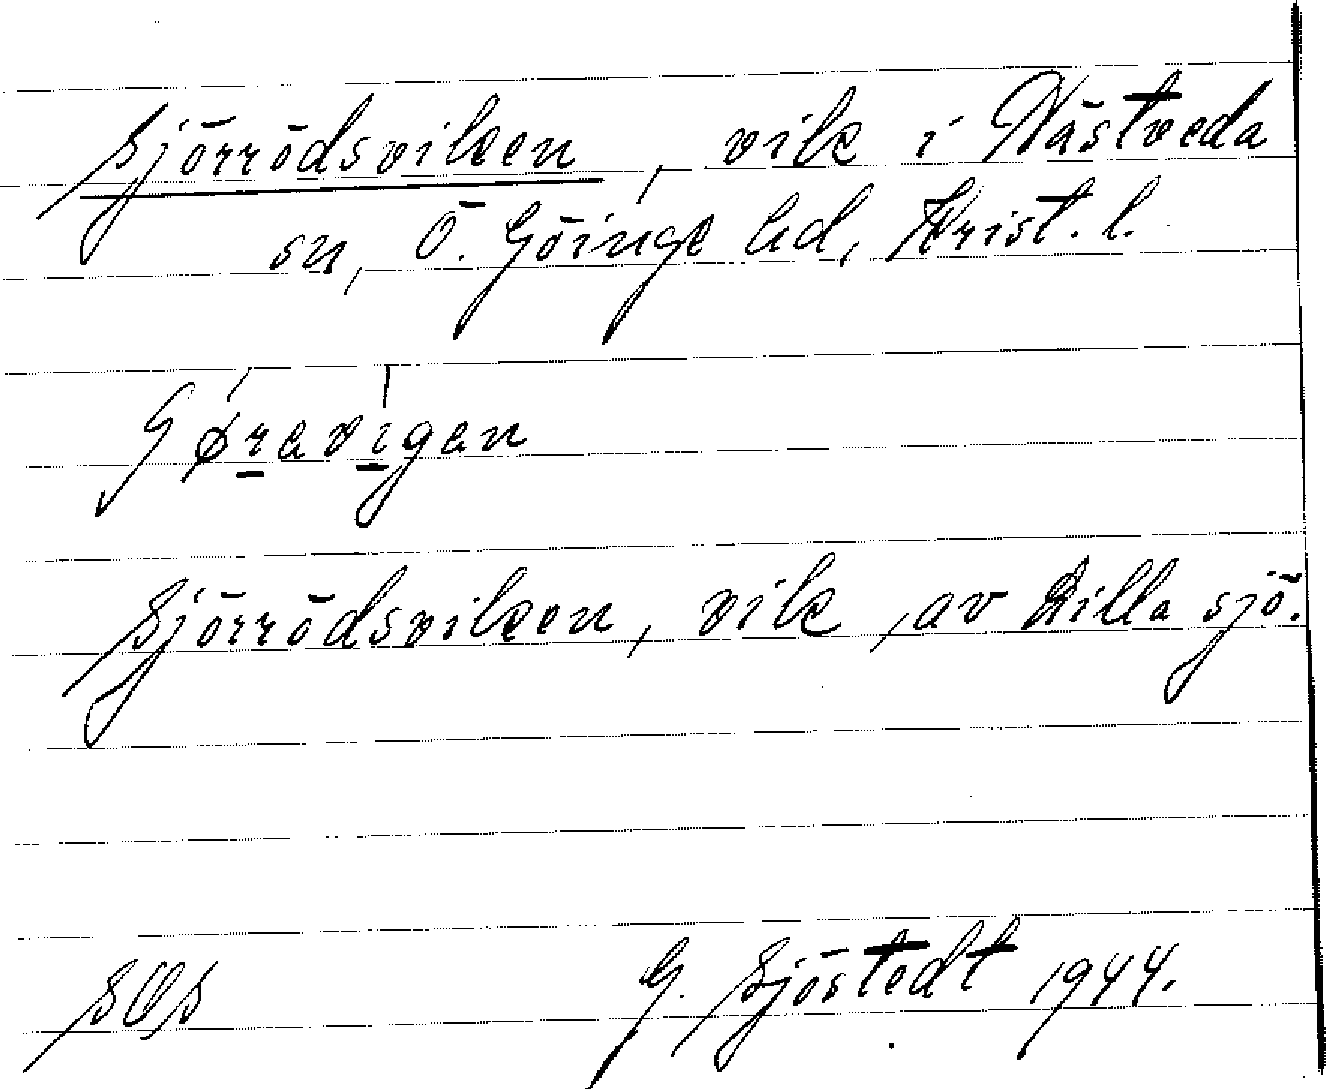 Sjörrödsviken, vik i Nästveda
sn, Ö. Göinge hd, Krist. l.
Sjörrödsviken, vik, av Lilla sjö.
G. Sjöstedt 1944.